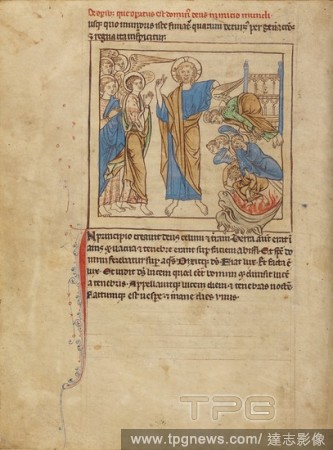 que opatus est dominus deus in initio mundi
usq quo mundus iste
& regna ita inspicitur
N principio creauit deus celum & terram Terra aut erat i
anis & uacua & tenebre erant sup faciem abissi Et sps do
mini ferebatur sup aqs Dixitq ds Fiat lux Et facta e
lux Et uidit ds lucem quod & diuisit luce
a tenebris Appellauitq lucem diem & tenebras noctem
Factumq est uespe & mane dies unus
TPG
www.tpgnews.com / 達志影像